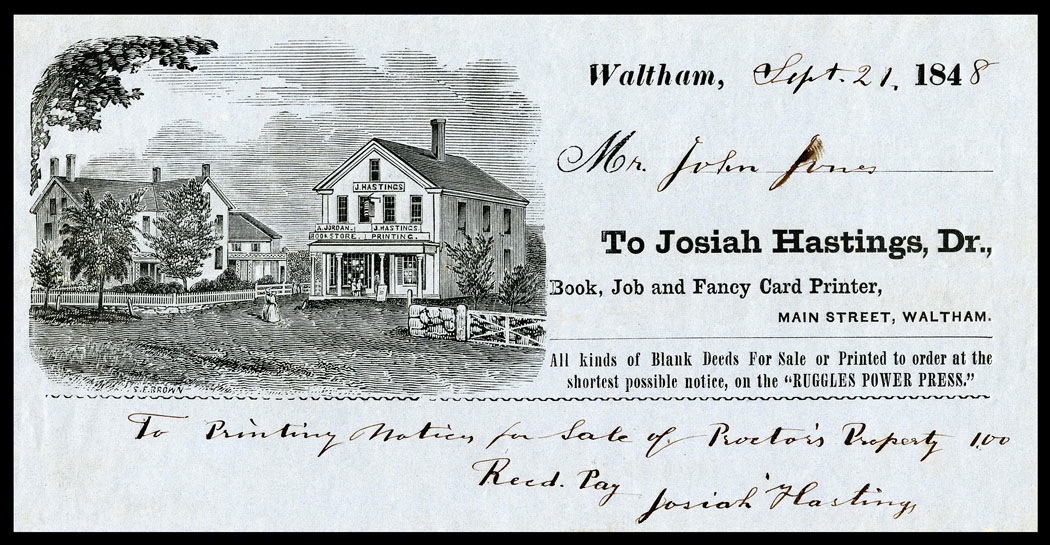 Waltham, Sept. 21, 1848
Mr. John Jones
To Josiah Hastings, Dr.,
Book, Job and Fancy Card Printer,
MAIN STREET, WALTHAM.
All kinds of Blank Deeds For Sale or Printed to order at the
shortest possible notice, on the "RUGGLES POWER PRESS."
J. HASTINGS
A. JORDAN. J. HASTINGS.
BOOKSTORE. PRINTING.
S. F. BROWN
To Printing Notices for Sale of Proctor's Property 1,00
Recd. Pay
Josiah Hastings